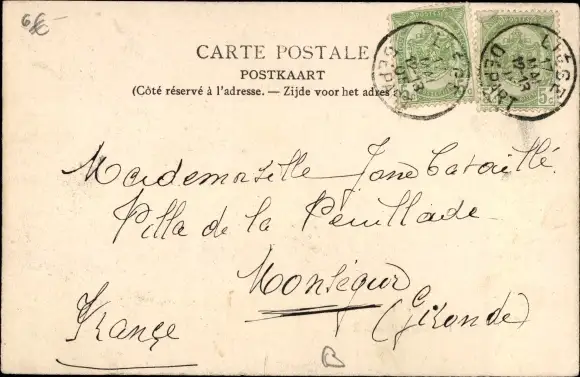 CARTE POSTALE
POSTKAART
(Côté réservé à l'adresse. — Zijde voor het adres
LIÉGE
DEPART
LIÉGE
DEPART
5c
Mademoiselle Jane Bataillé
Villa de la Feuillade
Monségur
(Gironde)
France